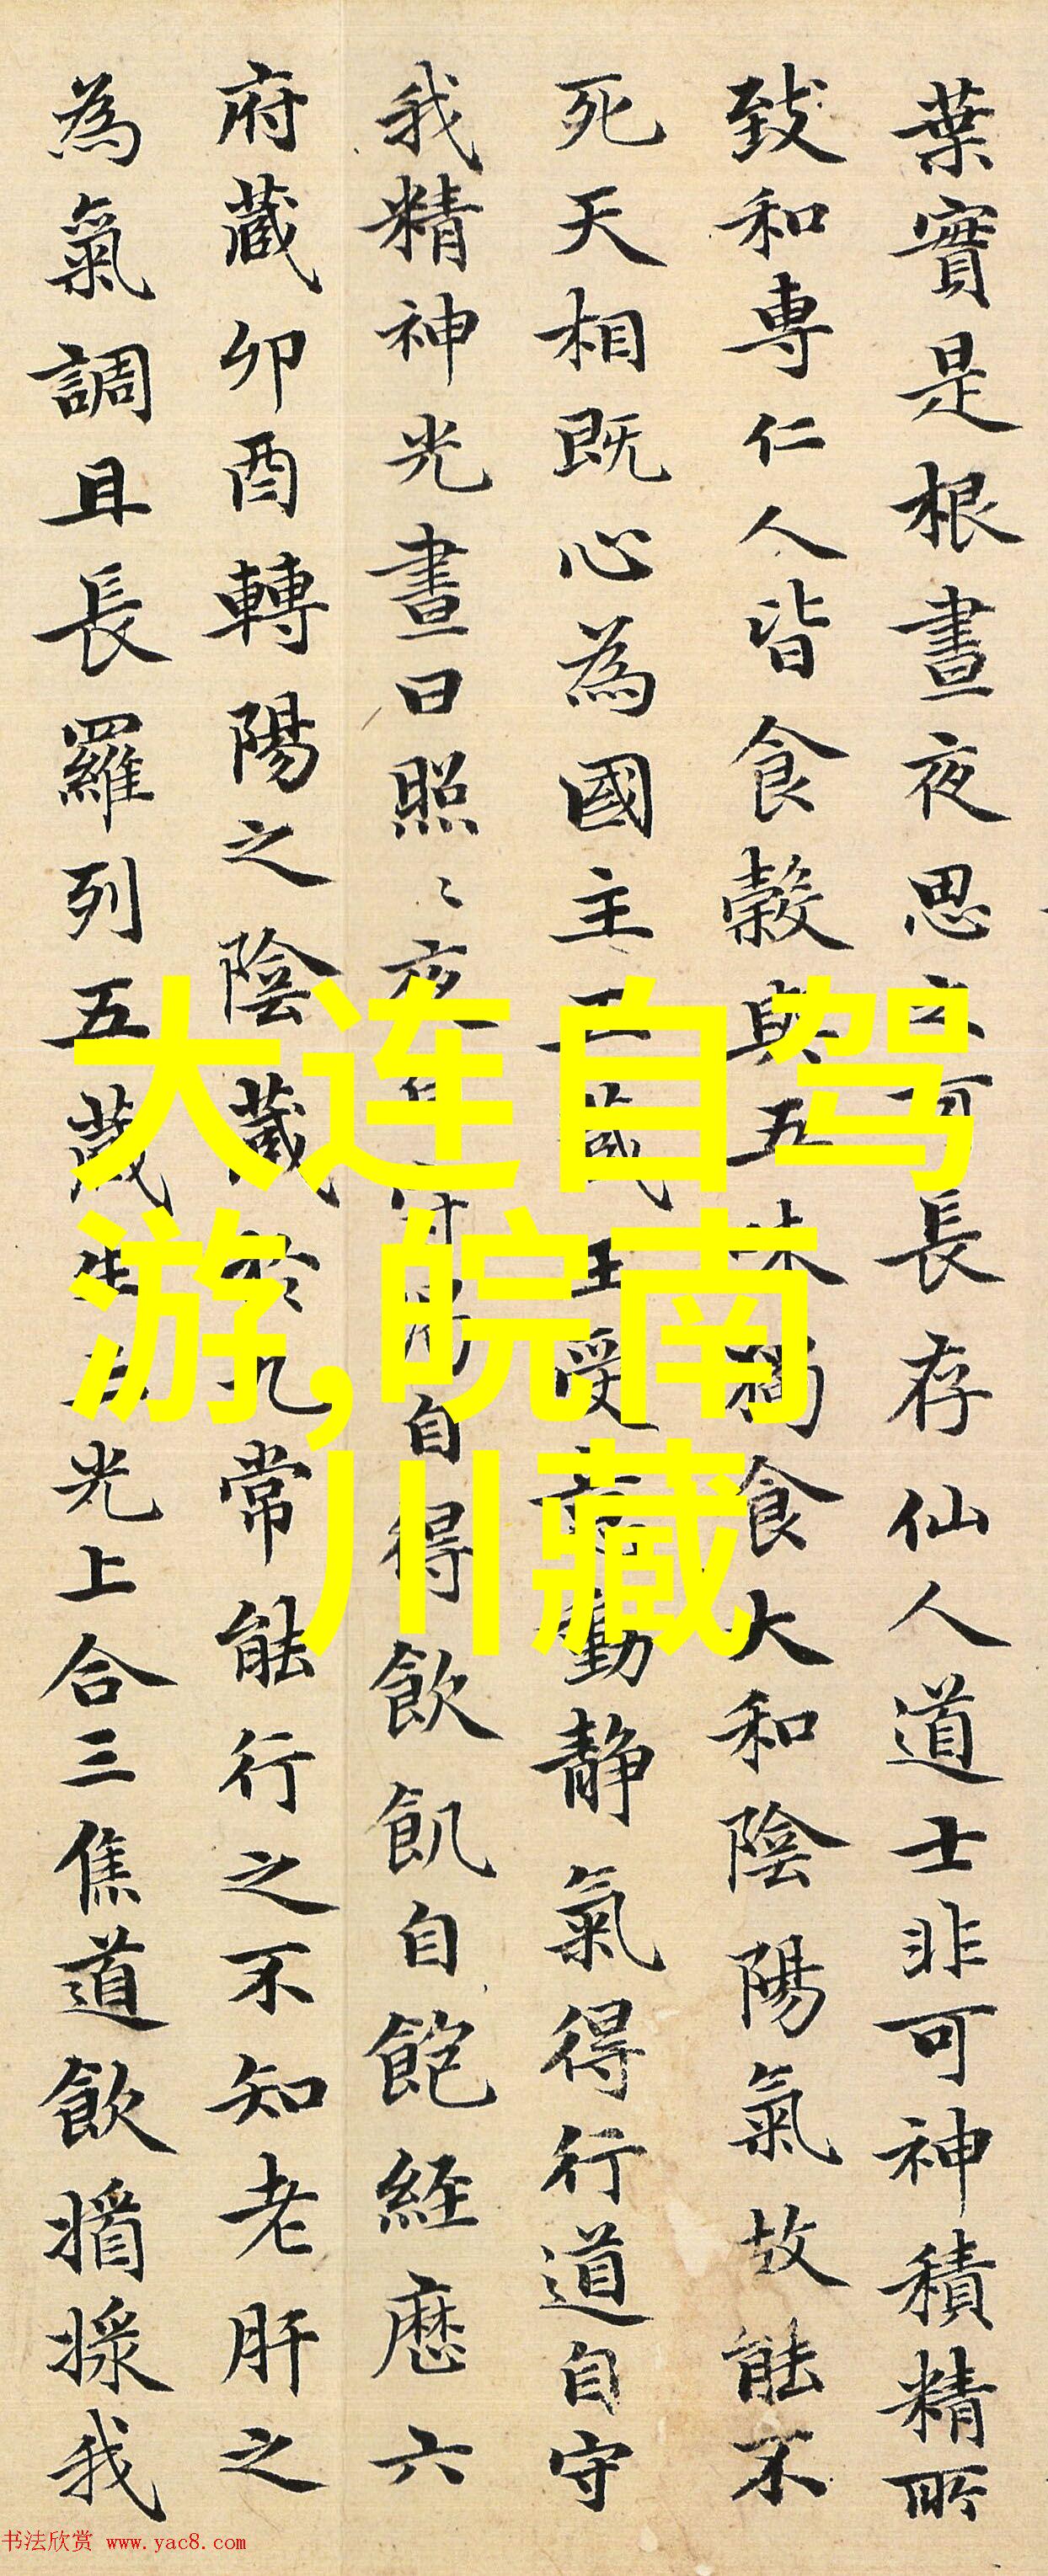 葉實是根晝夜思之可長存仙人道士非可神積精所
致和專仁人皆食穀與五味獨食大和陰陽氣故能不
死天相既心為國主五藏王受意動静氣得行道自守
我精神光晝日照〻夜自得飲飢自飽経歷六
府藏卯酉轉陽之陰藏於九常能行之不知老肝之
為氣調且長羅列五藏生三光上合三焦道飲㨡採我
大连自驾
游,皖南
川藏
书法欣赏 www.yac8.com